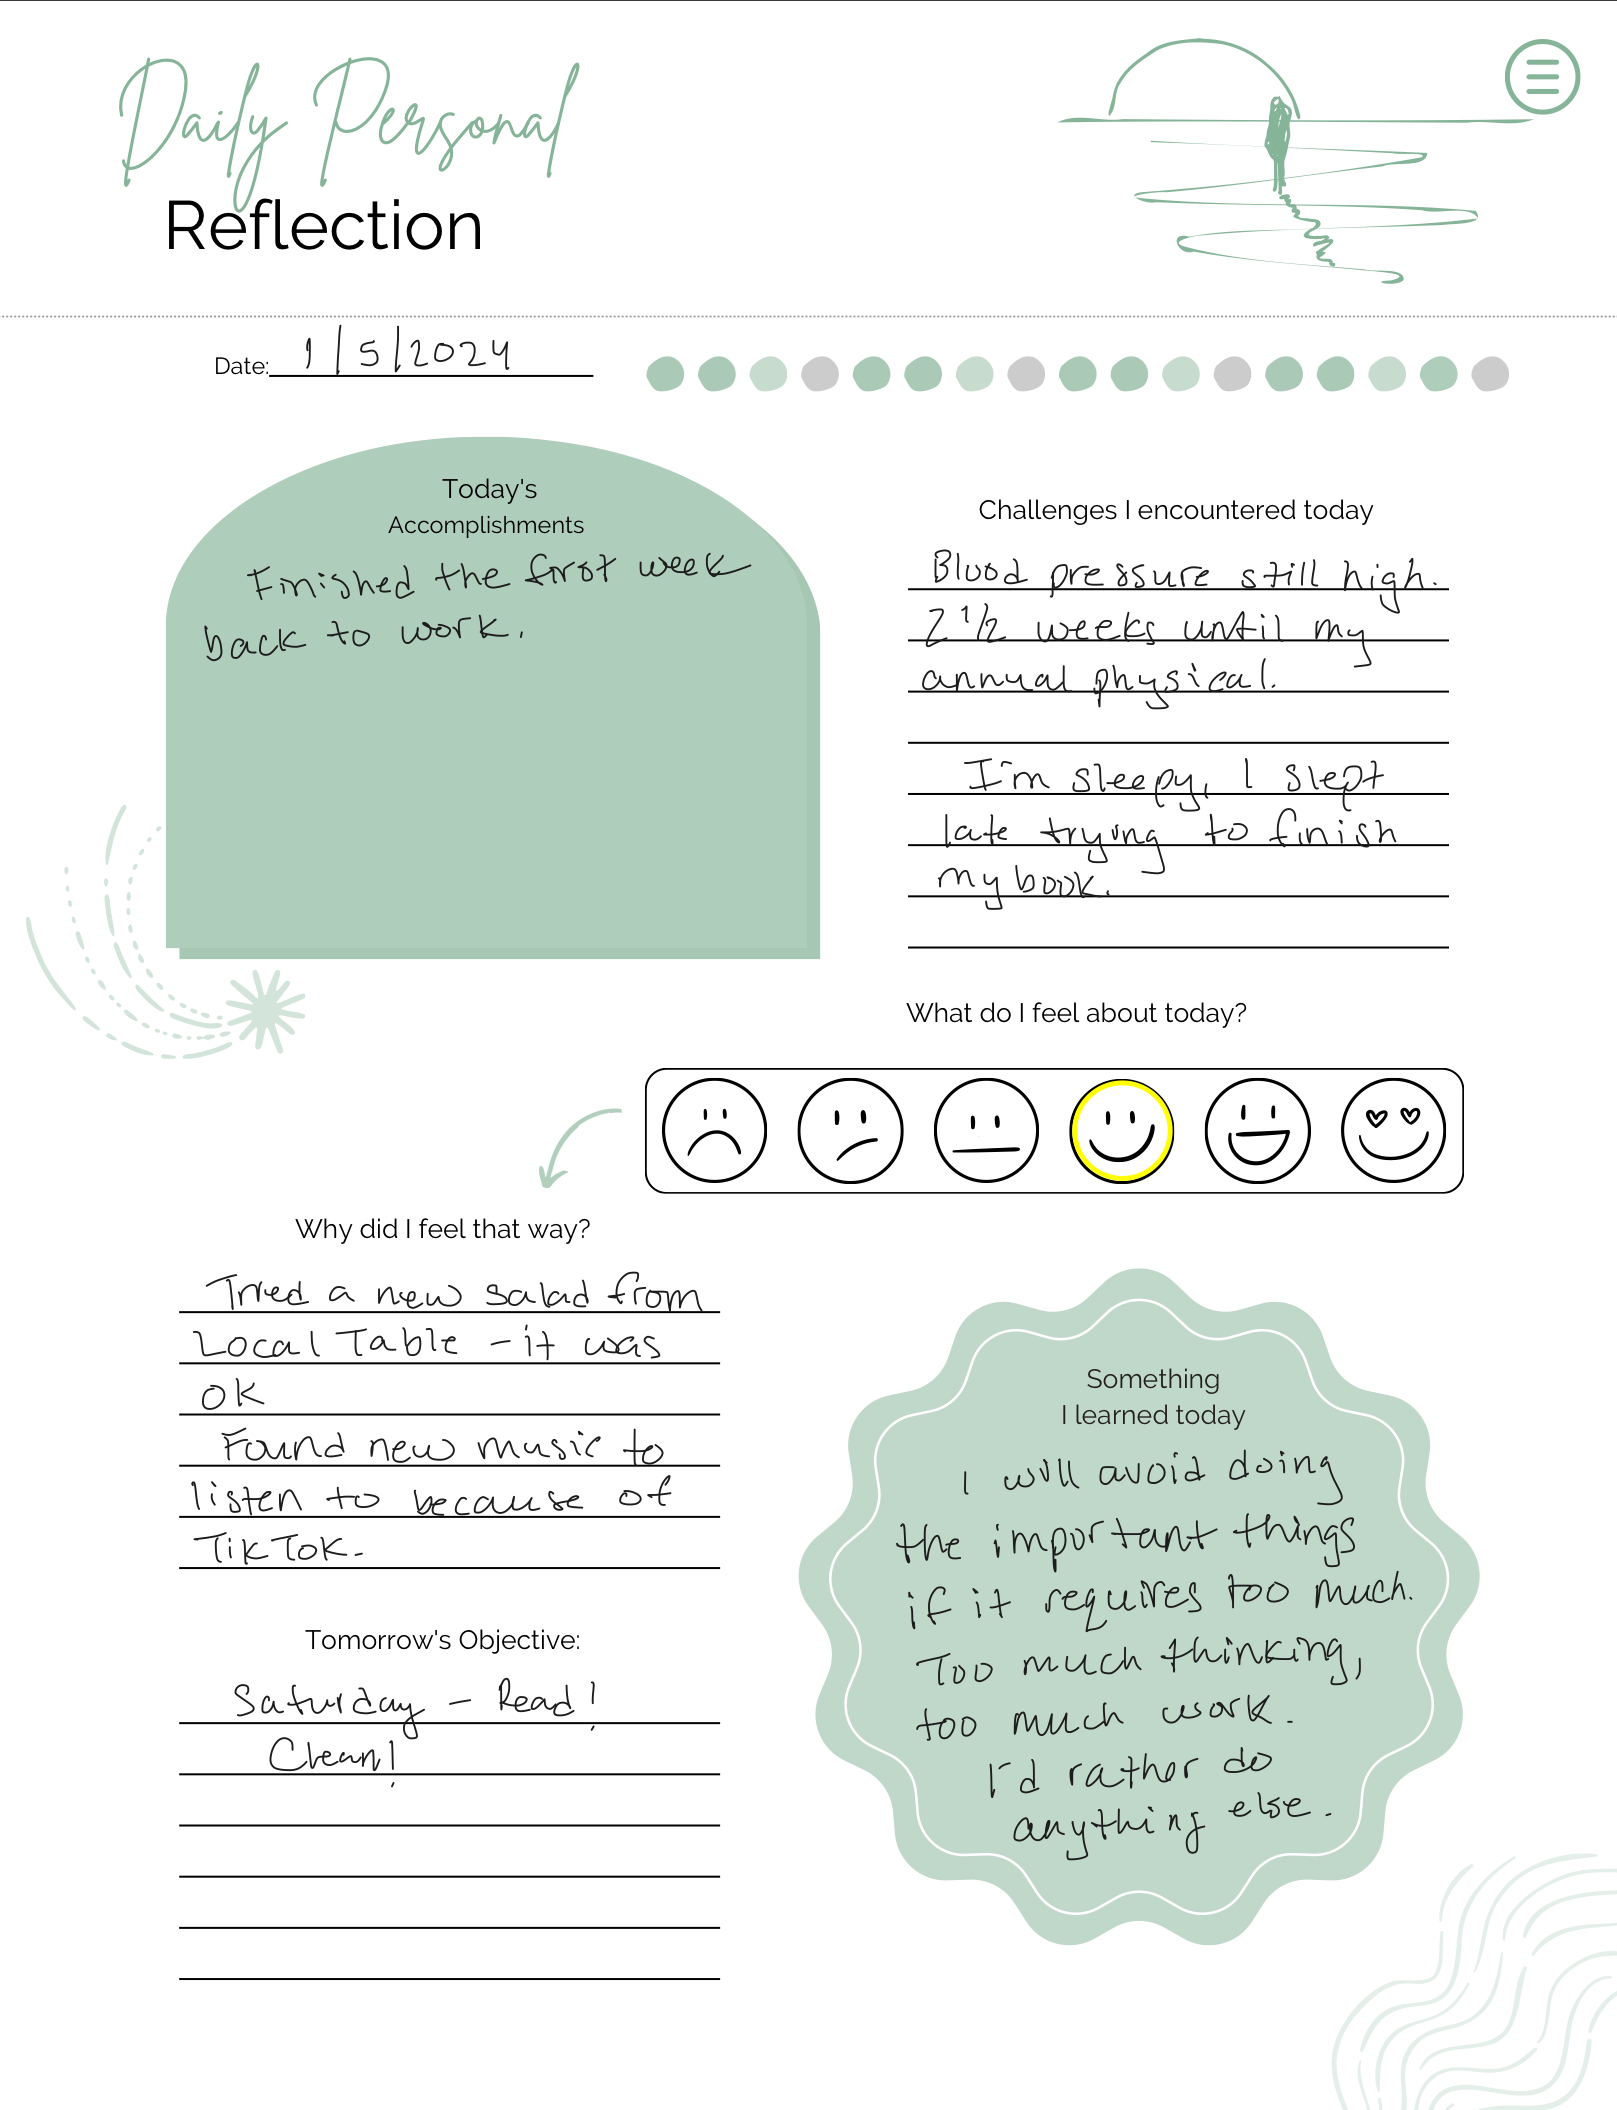 Daily Personal
Reflection
Date: 1/5/2024
Today's
Accomplishments
Finished the first week
back to work.
Challenges I encountered today
Blood pressure still high.
2 1/2 weeks until my
annual physical.
I'm sleepy, I slept
late trying to finish
my book.
What do I feel about today?
Why did I feel that way?
Tried a new salad from
Local Table - it was
OK
Found new music to
listen to because of
TikTok.
Something
I learned today
I will avoid doing
the important things
if it requires too much.
Too much thinking,
too much work.
I'd rather do
anything else.
Tomorrow's Objective:
Saturday - Read!
Clean!